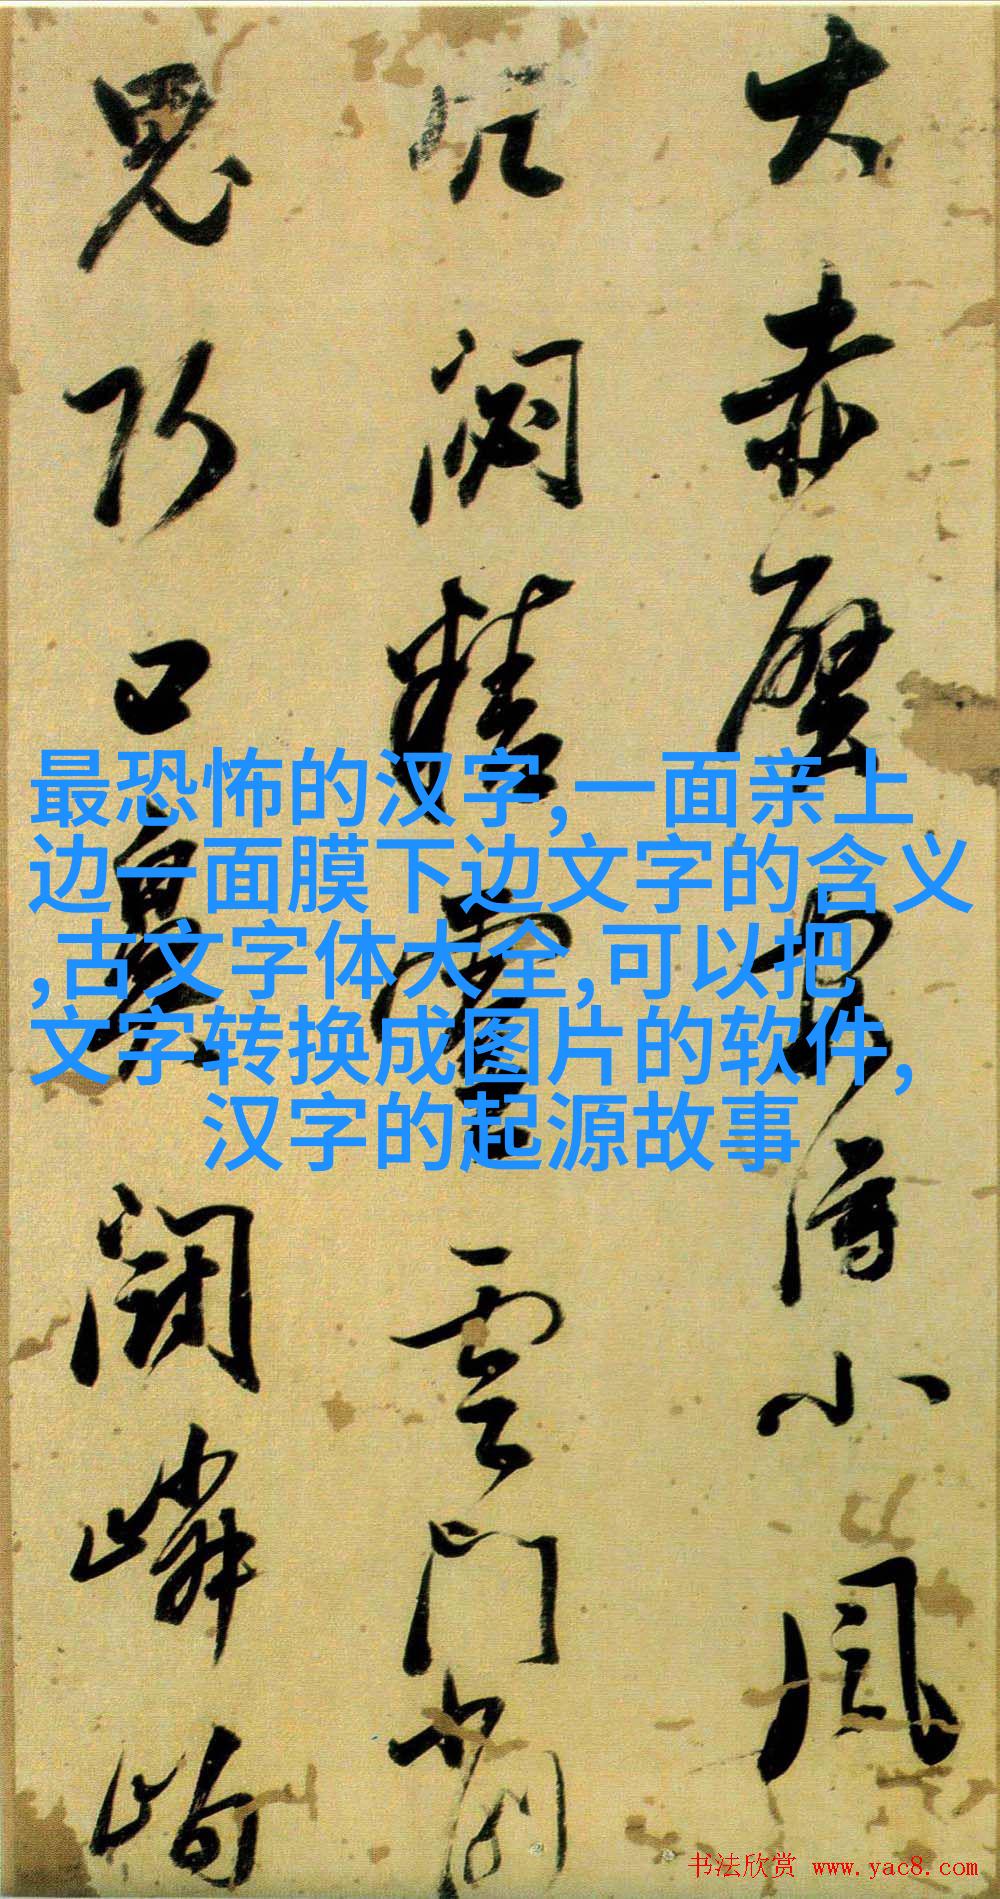 大赤壁得小風
閟精靈雲門
嶙峋
最恐怖的汉字,一面亲上
边一面膜下边文字的含义
,古文字体大全,可以把
文字转换成图片的软件,
汉字的起源故事
书法欣赏 www.yac8.com